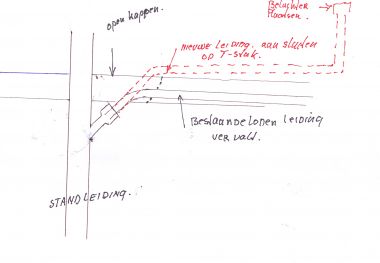 Beluchter
Plaatsen.
open kappen.
nieuwe leiding, aan sluiten
op T-stuk.
Bestaande loden leiding
vervalt.
STANDLEIDING.